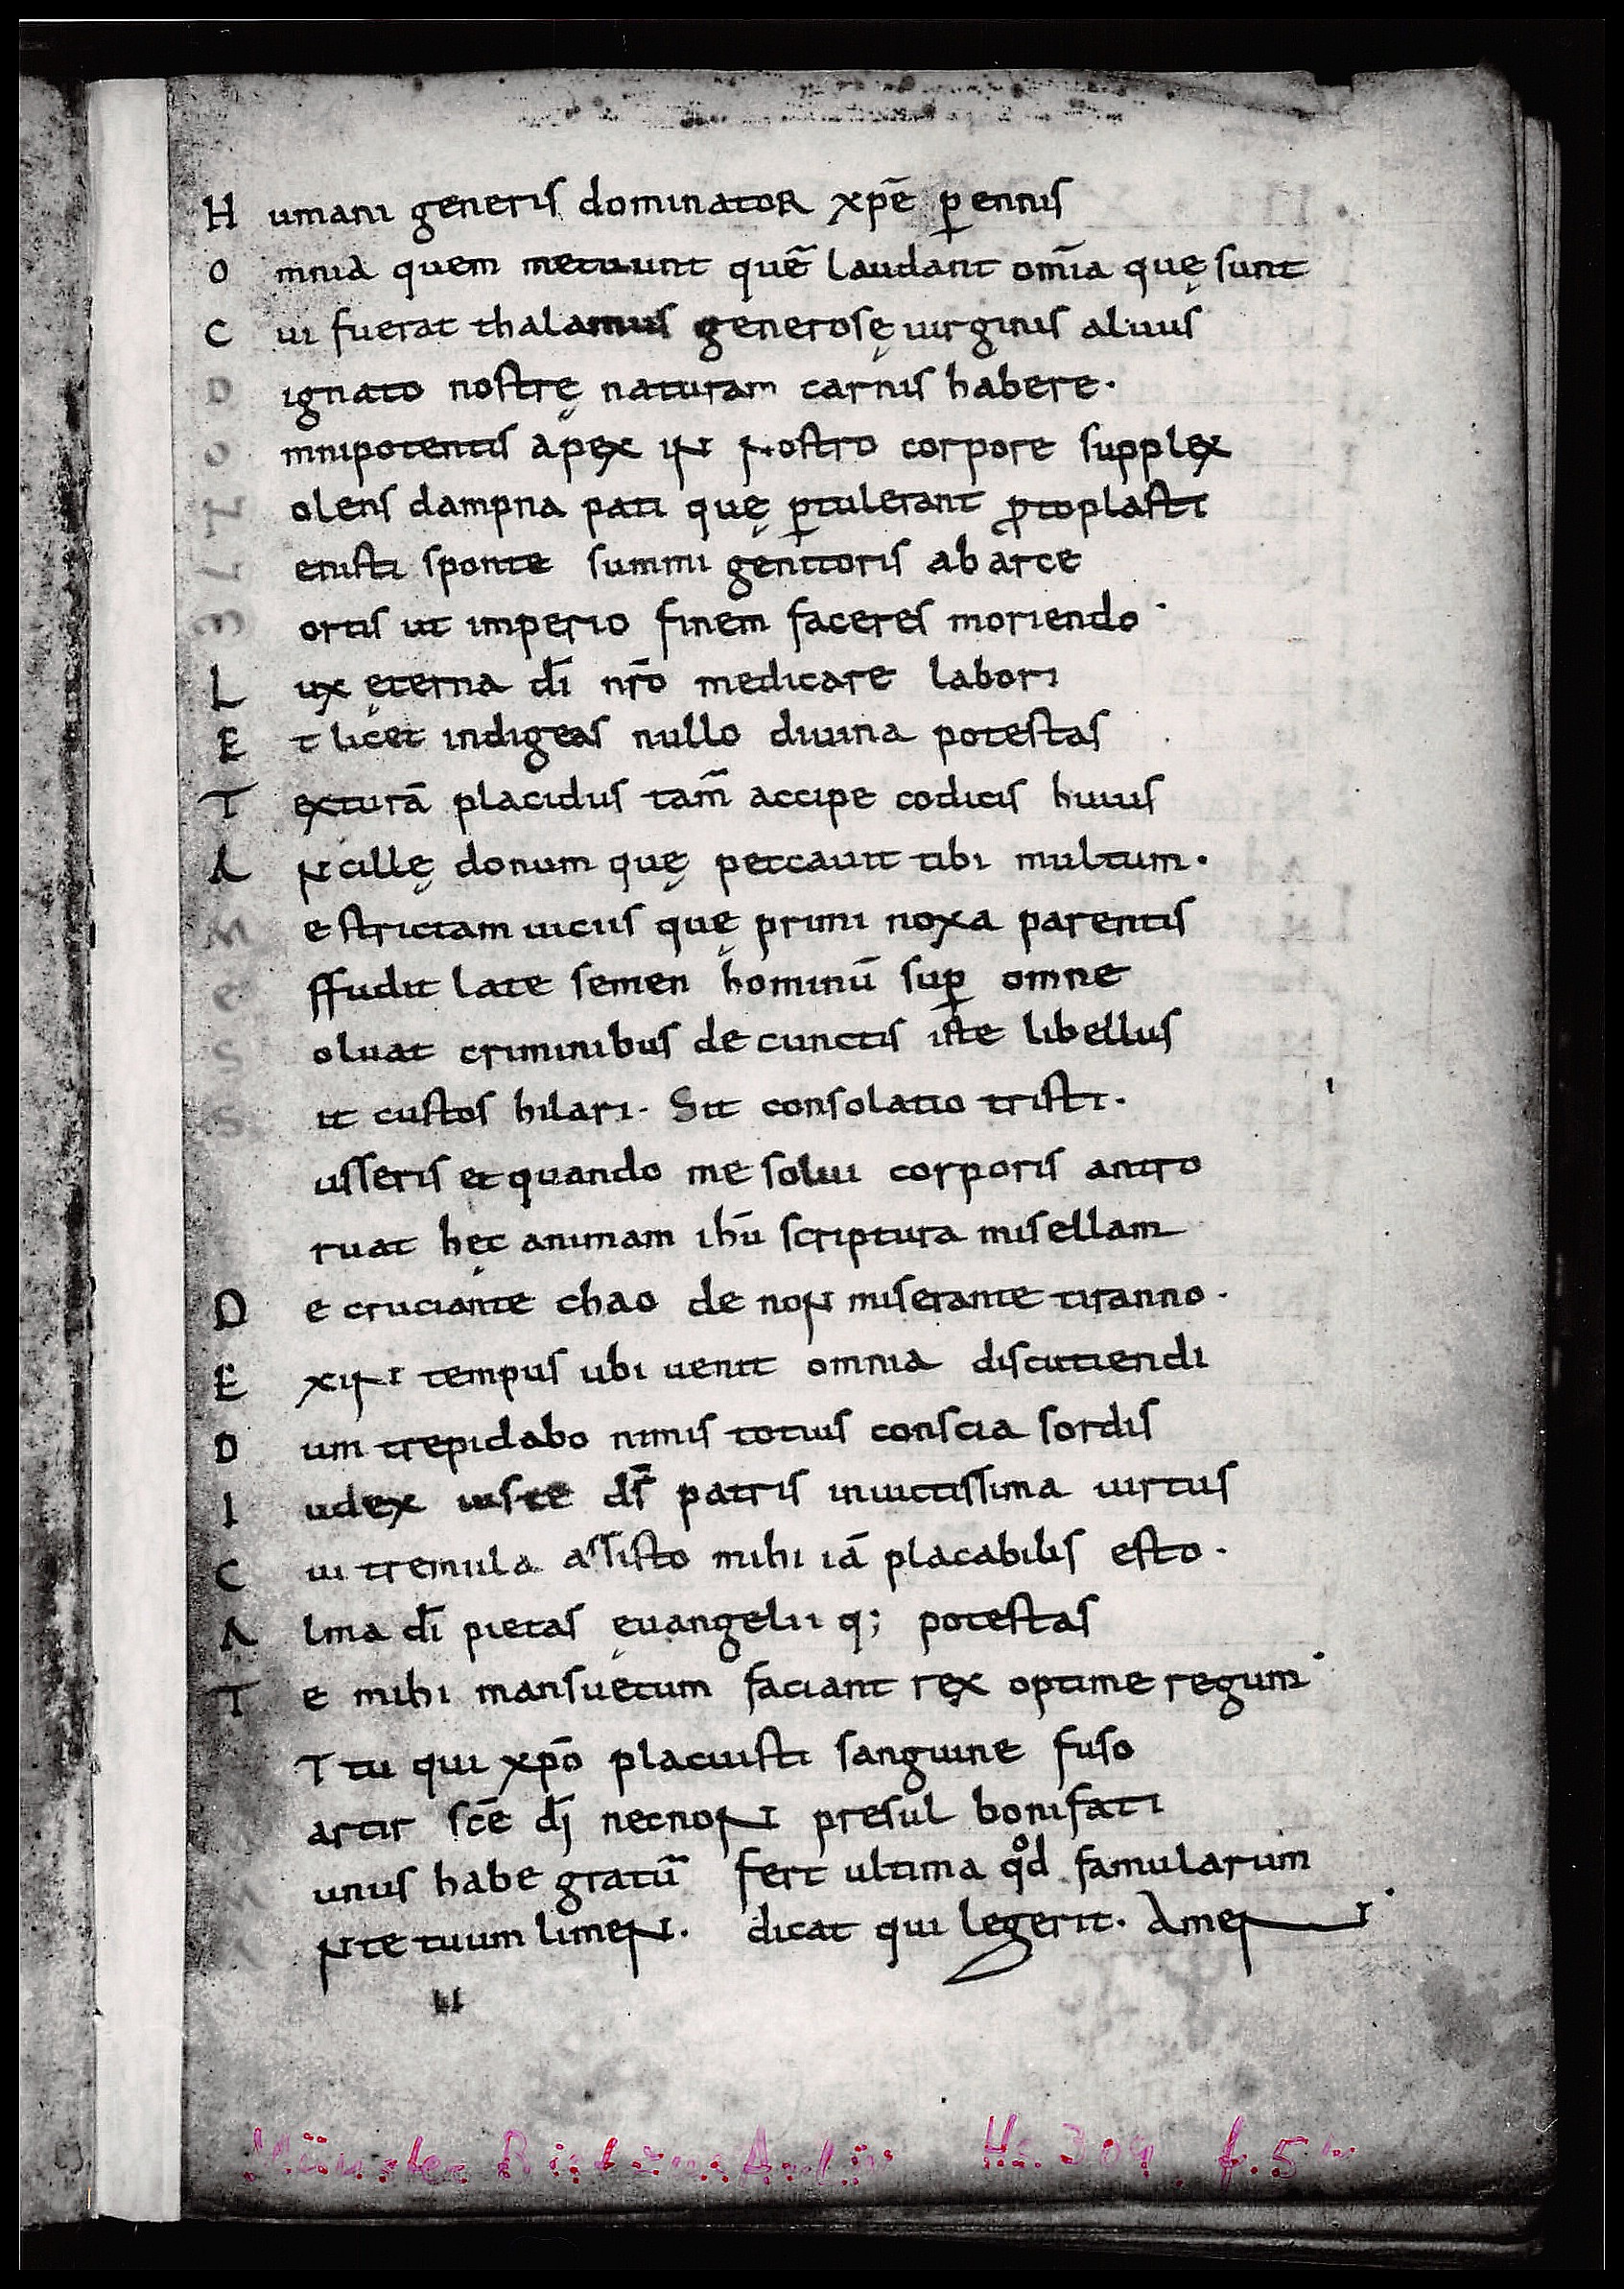 H umani generis dominator xp̄e p̱ennis
O mnia quem metuunt quē laudant om̄ia quę sunt
C ui fuerat thalamus generosę uirginis aluus
D ignato nostrę naturam carnis habere.
O mnipotentis apex in nostro corpore supplex
olens dampna pati quę ꝑtulerant ꝓtoplasti
enisti sponte summi genitoris ab arce
ortis ut imperio finem faceres moriendo.
L ux ęterna dī nr̄o medicare labori
E t licet indigeas nullo diuina potestas
T exturā placidus tam̄ accipe codicis huius
A ncillę donum quę peccauit tibi multum.
M estrictam uiciis quę primi noxa parentis
e ffudit late semen hominū suꝑ omne
S oluat criminibus de cunctis iste libellus
S it custos hilari. Sit consolatio tristi.
usseris et quando me solui corporis antro
ruat hęc animam ihū scriptura misellam
D e cruciante chao de non miserante tiranno.
E xin tempus ubi uenit omnia discutiendi
D um trepidabo nimis totius conscia sordis
I udex iuste dr̄ patris inuictissima uirtus
C ui tremula assisto mihi iā placabilis esto.
A lma dī pietas ęuangelii q; potestas
T e mihi mansuetum faciant rex optime regum.
T tu qui xp̄o placuisti sanguine fuso
artir sc̄e dī necnon presul bonifati
unus habe gratū fert ultima qd̊ famularum
nte tuum limen. dicat qui legerit. Amen.
Hs. 309 f. 5v